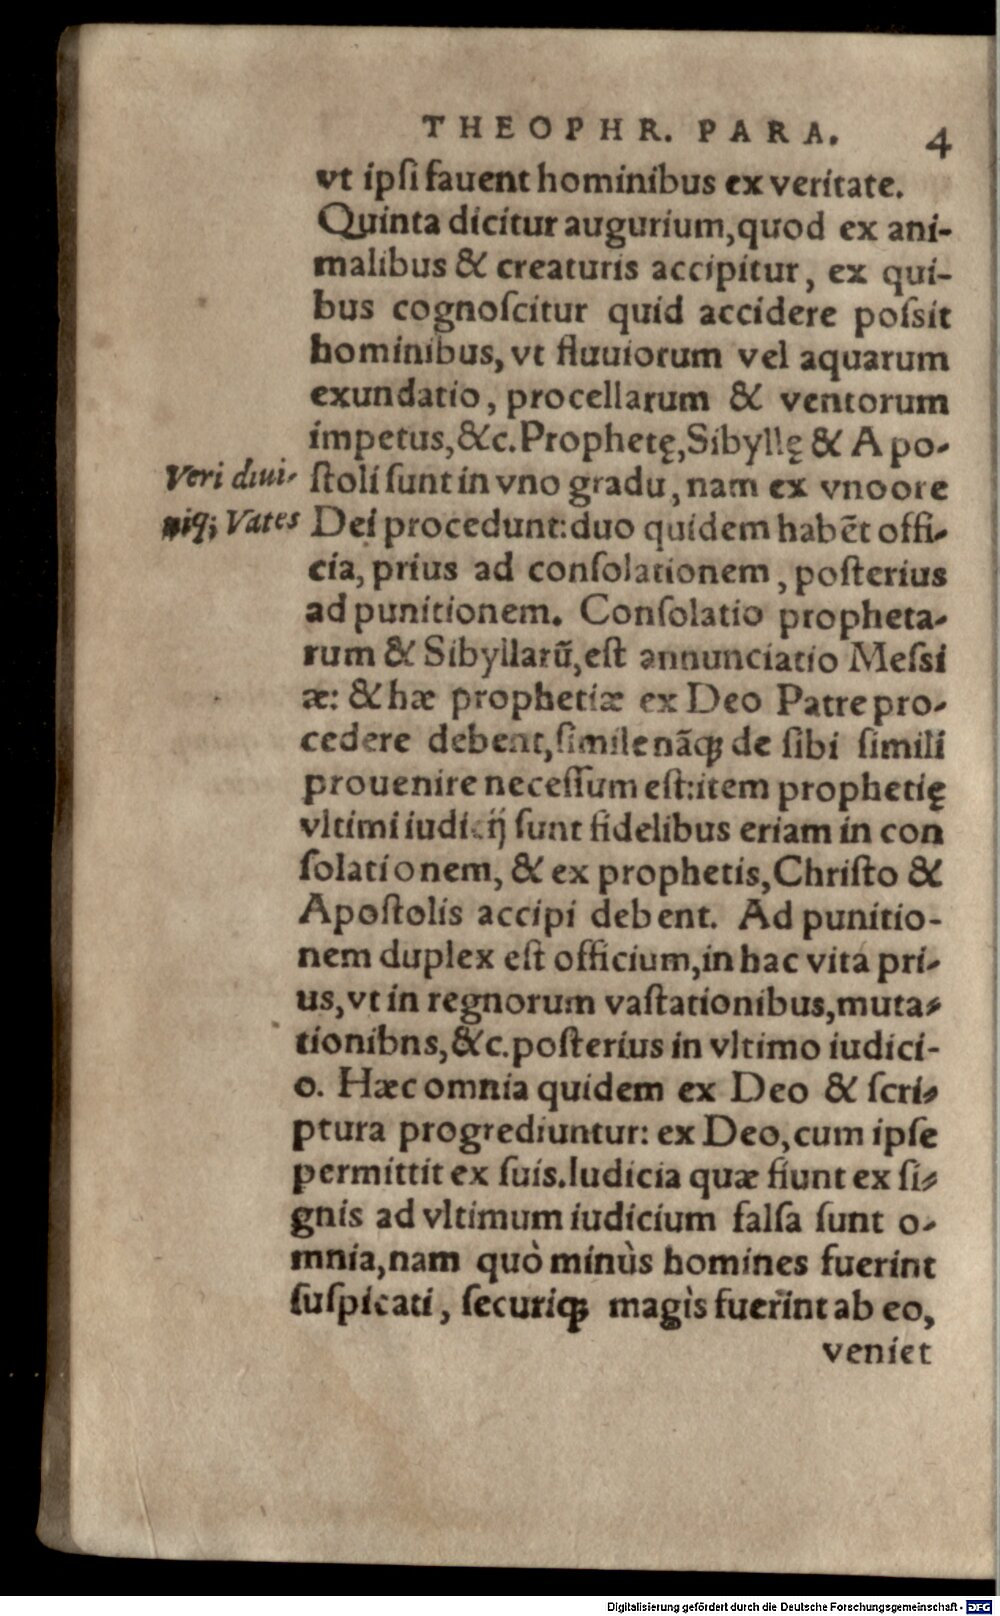 THEOPHR. PARA. 4
vt ipſi fauent hominibus ex veritate.
Quinta dicitur augurium, quod ex ani-
malibus & creaturis accipitur, ex qui-
bus cognoſcitur quid accidere poſsit
hominibus, vt fluuiorum vel aquarum
exundatio, procellarum & ventorum
impetus, &c. Prophetę, Sibyllę & Apo-
Veri diui-
ſtoli ſunt in vno gradu, nam ex vno ore
niq; Vates
Dei procedunt: duo quidem habēt offi-
cia, prius ad conſolationem, poſterius
ad punitionem. Conſolatio propheta-
rum & Sibyllarū, eſt annunciatio Meſsi
æ: & hæ prophetiæ ex Deo Patre pro-
cedere debent, ſimile nāq; de ſibi ſimili
prouenire neceſſum eſt: item prophetię
vltimi iudicij ſunt fidelibus eriam in con
ſolationem, & ex prophetis, Chriſto &
Apoſtolis accipi debent. Ad punitio-
nem duplex eſt officium, in hac vita pri-
us, vt in regnorum vaſtationibus, muta-
tionibns, &c. poſterius in vltimo iudici-
o. Hæc omnia quidem ex Deo & ſcri-
ptura progrediuntur: ex Deo, cum ipſe
permittit ex ſuis. Iudicia quæ fiunt ex ſi-
gnis ad vltimum iudicium falſa ſunt o-
mnia, nam quò minùs homines fuerint
ſuſpicati, ſecuriq; magìs fuerint ab eo,
veniet
Digitalisierung gefördert durch die Deutsche Forschungsgemeinschaft - DFG